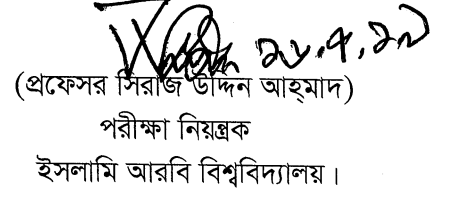 ২৮.৫.২৭
(প্রফেসর সিরাজ উদ্দিন আহ্‌মাদ)
পরীক্ষা নিয়ন্ত্রক
ইসলামি আরবি বিশ্ববিদ্যালয়।